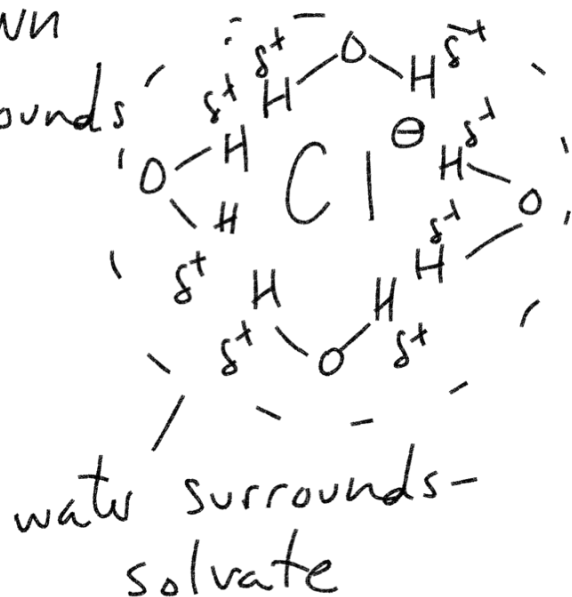 wn
ounds
δ+ O δ+
δ+ H H
H Cl ⊖ δ+
O H
H δ+ O
δ+ H H H
δ+ O δ+
water surrounds-
solvate